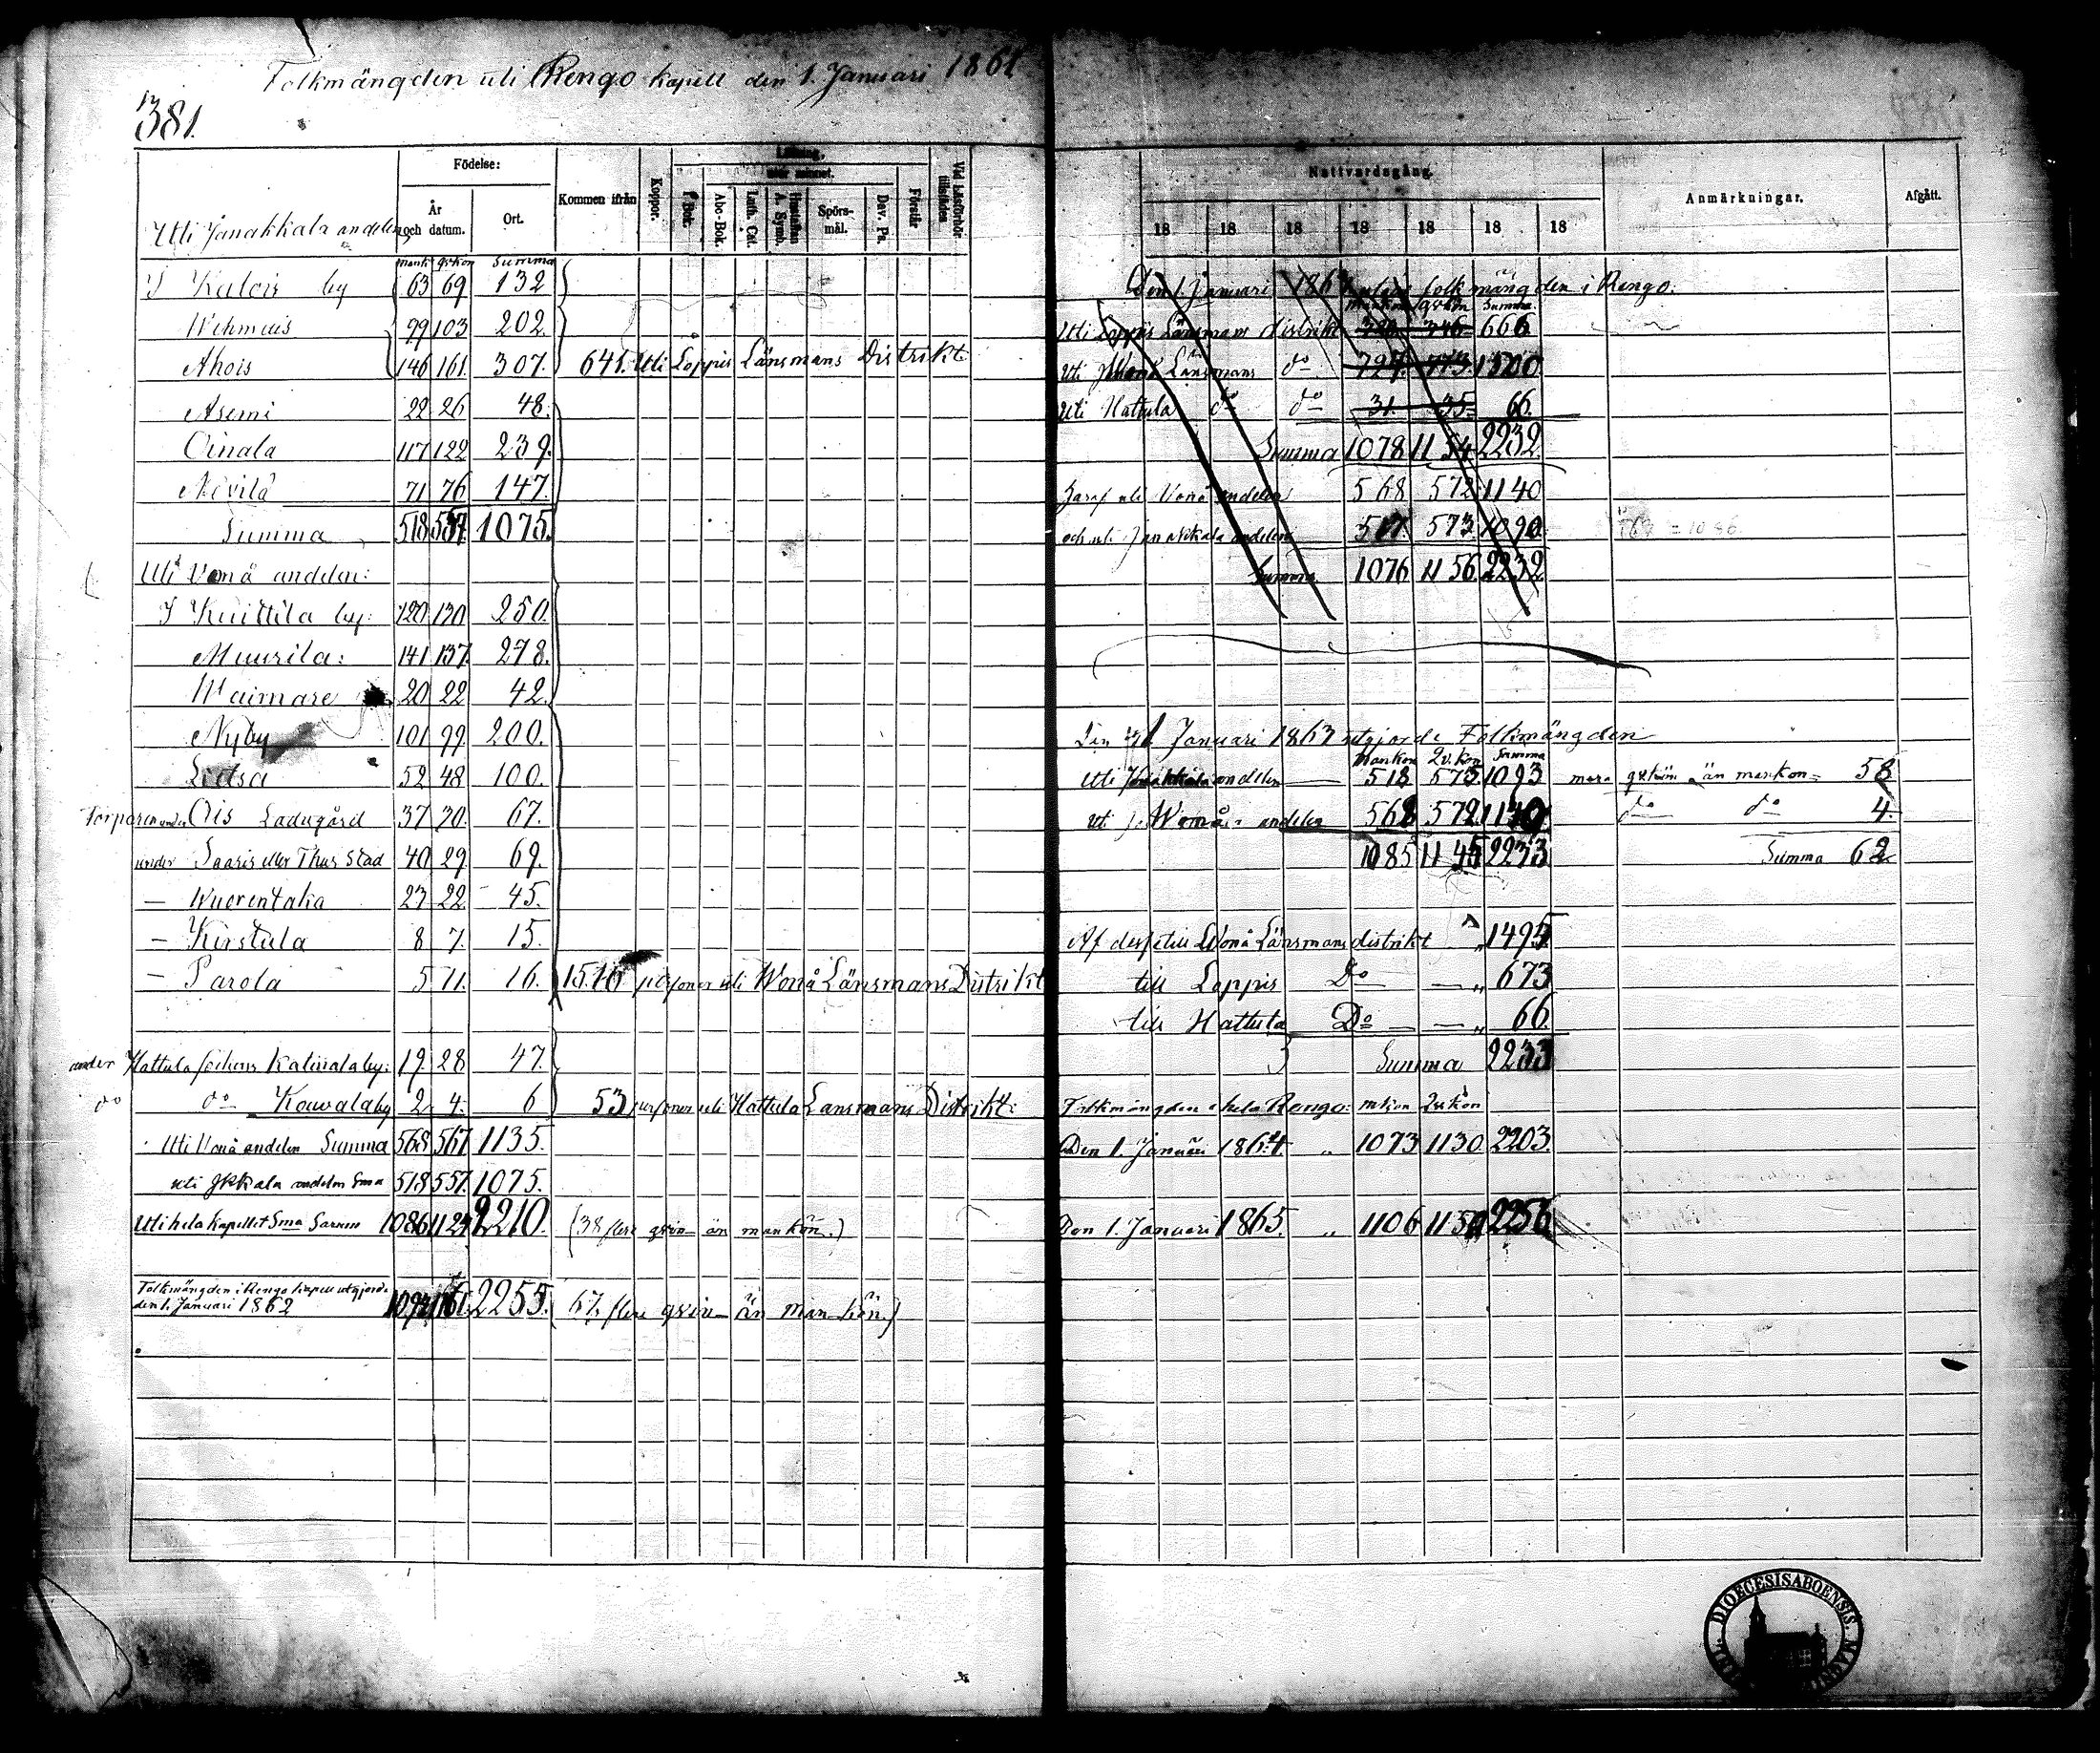 Folkmängden uti Rengo kapell den 1. Januari 1861
381.
Födelse:
År och datum.
Ort.
Kommen ifrån
Koppor.
Läsning,
utur minnet.
f Bok.
Abc-Bok.
Luth. Cat.
Hustaflan A. Symb.
Spörs-mål.
Dav. Ps.
Förstår
Vid Läsförhör tillstädes
Uti Janakkala andelen
mank qvkön Summa
I Kalois by 63 69 132
Wehmais 99 103 202.
Ahois 146 161. 307. 641. Uti Loppis Länsmans Distrikt
Asemi 22 26 48.
Oinala 117 122 239.
Nevilä 71 76 147.
Summa 518 557. 1075.
Uti Vonå andelen:
I Kuittila by: 120 130 250.
Muurila: 141 137. 278.
Waimare 20 22 42.
Nyby 101 99. 200.
Lietsa 52 48 100.
Torparen under Ois Ladugård 37 30. 67.
under Saaris eller Thurstad 40 29. 69.
— Wuorentaka 23 22 45.
— Kirstula 8 7. 15.
— Parola 5 11. 16. 1516 personer uti Wonå Länsmans Distrikt
under Hattula sockens Katinala by: 19. 28 47.
do do Kouvala by 2 4. 6 53 personer uti Hattula Länsmans Distrikt:
Uti Vonå andelen Summa 568 567 1135.
uti Jkkala andelen Sma 518 557. 1075.
Uti hela kapellet Sma Sarum 1086 1124 2210. (38 flere qvin- än mankön.)
Folkmängden i Rengo kapell utgjorde
den 1. Januari 1862 1094 1161. 2255. (67. flere qvin- än man kön.)
Nattvardsgång.
18 18 18 18 18 18 18
Anmärkningar.
Afgått.
Den 1 Januari 186 folkmängden i Rengo.
mankön qvkön Summa
Uti Loppis Länsmans distrikt 346 666
Uti Länsmans do 727. 773. 1500
Uti Hattula do do 31. 35. 66.
Summa 1078 1154 2232
Häraf uti Vonå andelen 568 572. 1140
och uti Janakkala andelen 517. 573. 1090.
Summa 1076 1156 2232
Den 1 Januari 1863 utgjorde Folkmängden
Mankön Qv. kön Summa
uti Janakkala andelen — 518 575 1093 mera qvkön än mankön = 58
uti Wonå andelen 568 572 1140 do do 4.
1085 1145 2233 Summa 62
Af dess till Wonå Länsmans distrikt „ 1495
till Loppis Do — „ 673
till Hattula Do — — „ 66.
Summa 2233
Folkmängden i hela Rengo: mkön Qvkön
Den 1. Januari 1864 „ 1073 1130 2203.
Den 1. Januari 1865. „ 1106 1150 2256
DIOECESIS ABOENSIS.